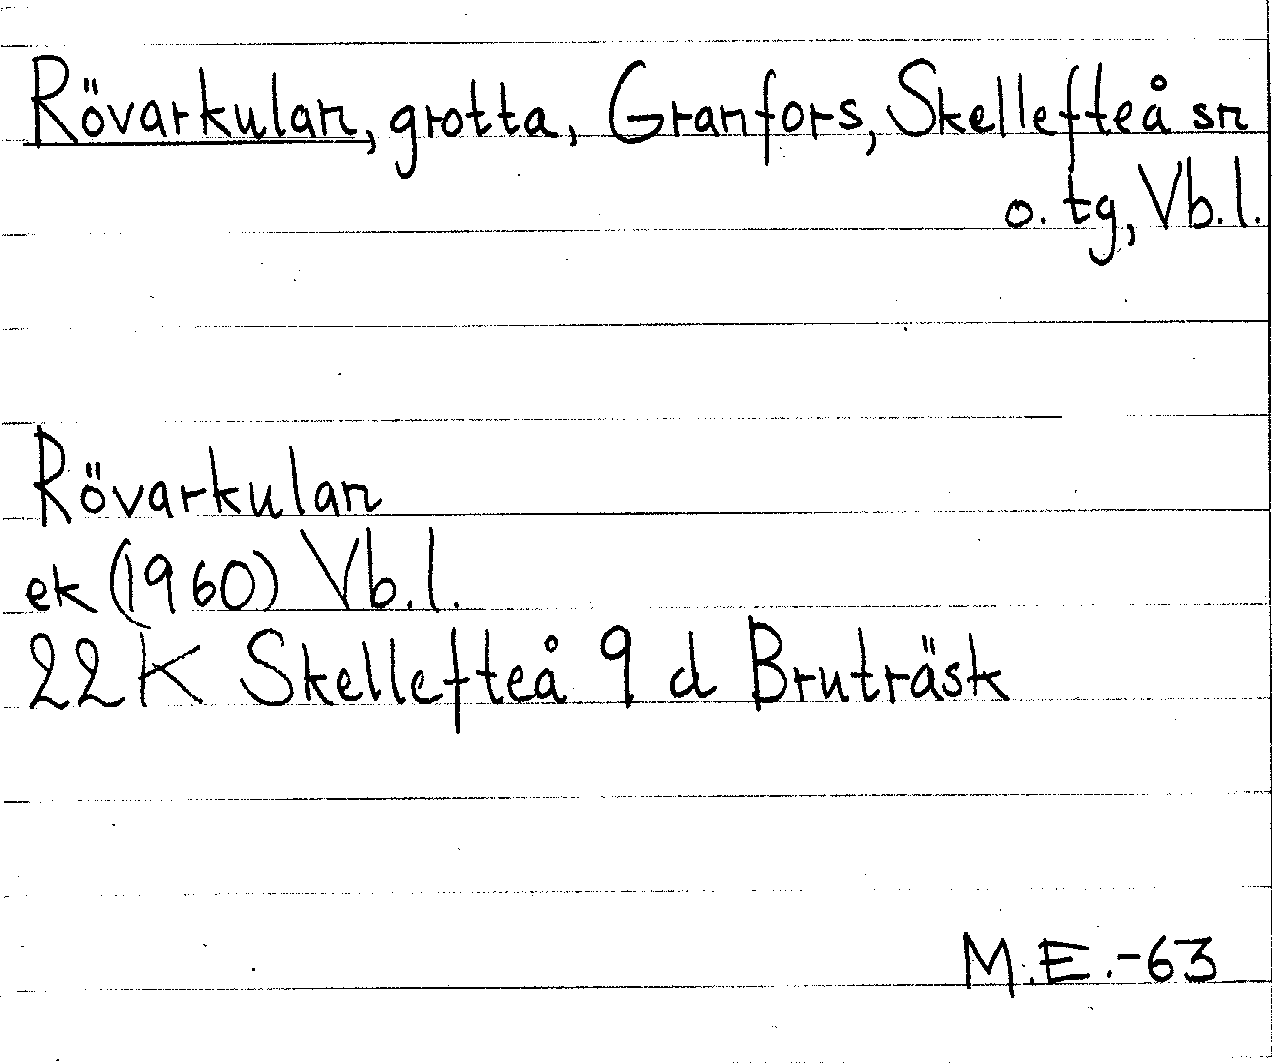 Rövarkulan, grotta, Granfors, Skellefteå sn
o. tg, Vb.l.
Rövarkulan
ek (1960) Vb.l.
22K Skellefteå 9 d Bruträsk
M.E.-63